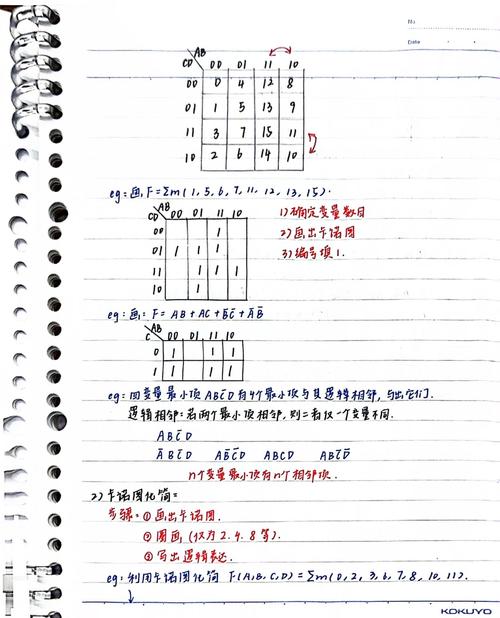 No.
Date
AB
CD 00 01 11 10
00 0 4 12 8
01 1 5 13 9
11 3 7 15 11
10 2 6 14 10
eg: 画, F=Σm(1, 5, 6, 7, 11, 12, 13, 15).
AB
CD 00 01 11 10
00 1
01 1 1 1
11 1 1 1
10 1
1) 确定变量数目
2) 画出卡诺图
3) 编号填1.
eg: 画: F = AB + AC + B̄C̄ + ĀB̄
AB
C 00 01 11 10
0 1 1 1
1 1 1 1
eg: 四变量最小项ABC̄D有4个最小项与其逻辑相邻, 写出它们.
逻辑相邻: 若两个最小项相邻, 则二者仅一个变量不同.
ABC̄D
ĀBC̄D AB̄C̄D ABCD ABC̄D̄
n个变量最小项有n个相邻项.
2) 卡诺图化简:
步骤: ① 画出卡诺图.
② 圈画 (仅为2. 4. 8 等).
③ 写出逻辑表达.
eg: 利用卡诺图化简 F(A,B,C,D) = Σm(0, 2, 3, 6, 7, 8, 10, 11).
KOKUYO